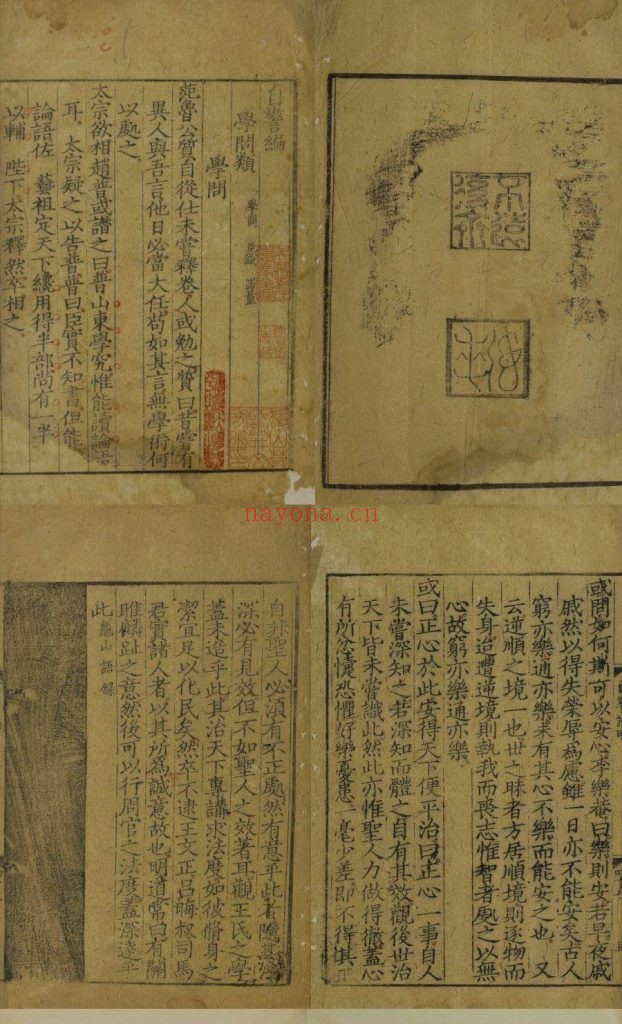 自警編
學問類 學問 見識 器量
學問
范魯公質自從仕未嘗釋卷人或勉之質曰昔嘗有
異人與吾言他日必當大任苟如其言無學術何
以處之
太宗欲相趙普或譖之曰普山東學究惟能讀論語
耳太宗疑之以告普普曰臣實不知書但能
論語佐 藝祖定天下纔用得半部尚有一半
以輔 陛下太宗釋然卒相之
nayona.cn
或問如何斯可以安心李樂菴曰樂則安若早夜戚
戚然以得失榮辱爲慮雖一日亦不能安矣古人
窮亦樂通亦樂果有其心不樂而能安之也又
云逆順之境一也世之昧者方居順境則逐物而
失身迨遭逆境則執我而喪志惟智者處之以無
心故窮亦樂通亦樂
或曰正心於此安得天下便平治曰正心一事自人
未嘗深知之若深知而體之自有其效觀後世治
天下皆未嘗識此然此亦惟聖人力做得徹蓋心
有所忿懥恐懼好樂憂患一毫少差即不得其正
自非聖人必須有不正處然有意乎此者隨其
深必有見效但不如聖人之效著耳觀王氏之學
蓋未造乎此其治天下專講求法度如彼脩身之
潔宜足以化民矣然卒不逮王文正呂晦叔司馬
君實諸人者以其所爲誠意故也明道常曰有關
雎麟趾之意然後可以行周官之法度蓋深達乎
此 龜山語錄